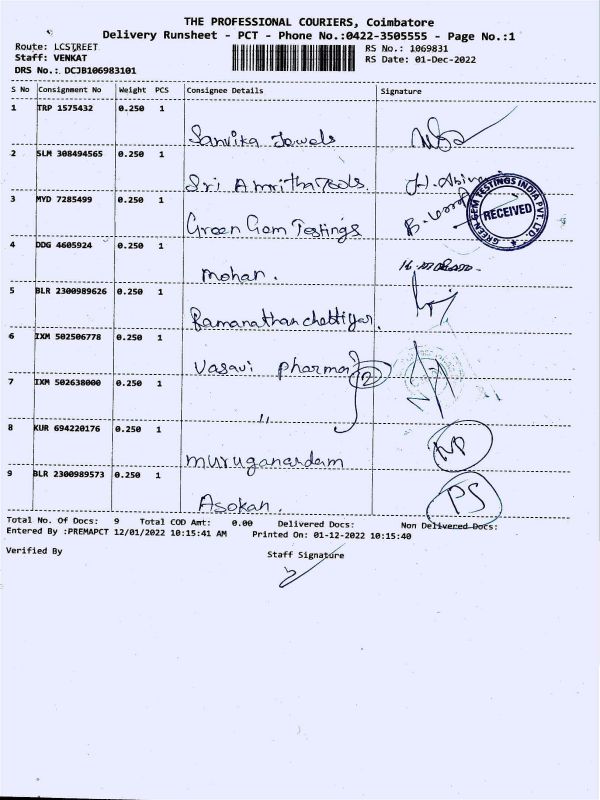 THE PROFESSIONAL COURIERS, Coimbatore
Delivery Runsheet - PCT - Phone No.:0422-3505555 - Page No.:1
Route: LCSTREET
RS No.: 1069831
Staff: VENKAT
RS Date: 01-Dec-2022
DRS No.: DCJB106983101
S No Consignment No Weight PCS Consignee Details Signature
1 TRP 1575432 0.250 1
Sanvika Jewels
2 SLM 308494565 0.250 1
Sri Amritha Tools.
3 MYD 7285499 0.250 1
Green Gem Testings
GREEN GEM TESTINGS INDIA PVT. LTD.
RECEIVED
4 DDG 4605924 0.250 1
Mohan.
5 BLR 2300989626 0.250 1
Ramanathan chettiyar.
6 IXM 502506778 0.250 1
Vasavi pharma 2
7 IXM 502638000 0.250 1
"
8 KUR 694220176 0.250 1
muruganandam NP
9 BLR 2300989573 0.250 1
Asokan. PS
Total No. Of Docs: 9 Total COD Amt: 0.00 Delivered Docs: Non Delivered Docs:
Entered By :PREMAPCT 12/01/2022 10:15:41 AM Printed On: 01-12-2022 10:15:40
Verified By
Staff Signature